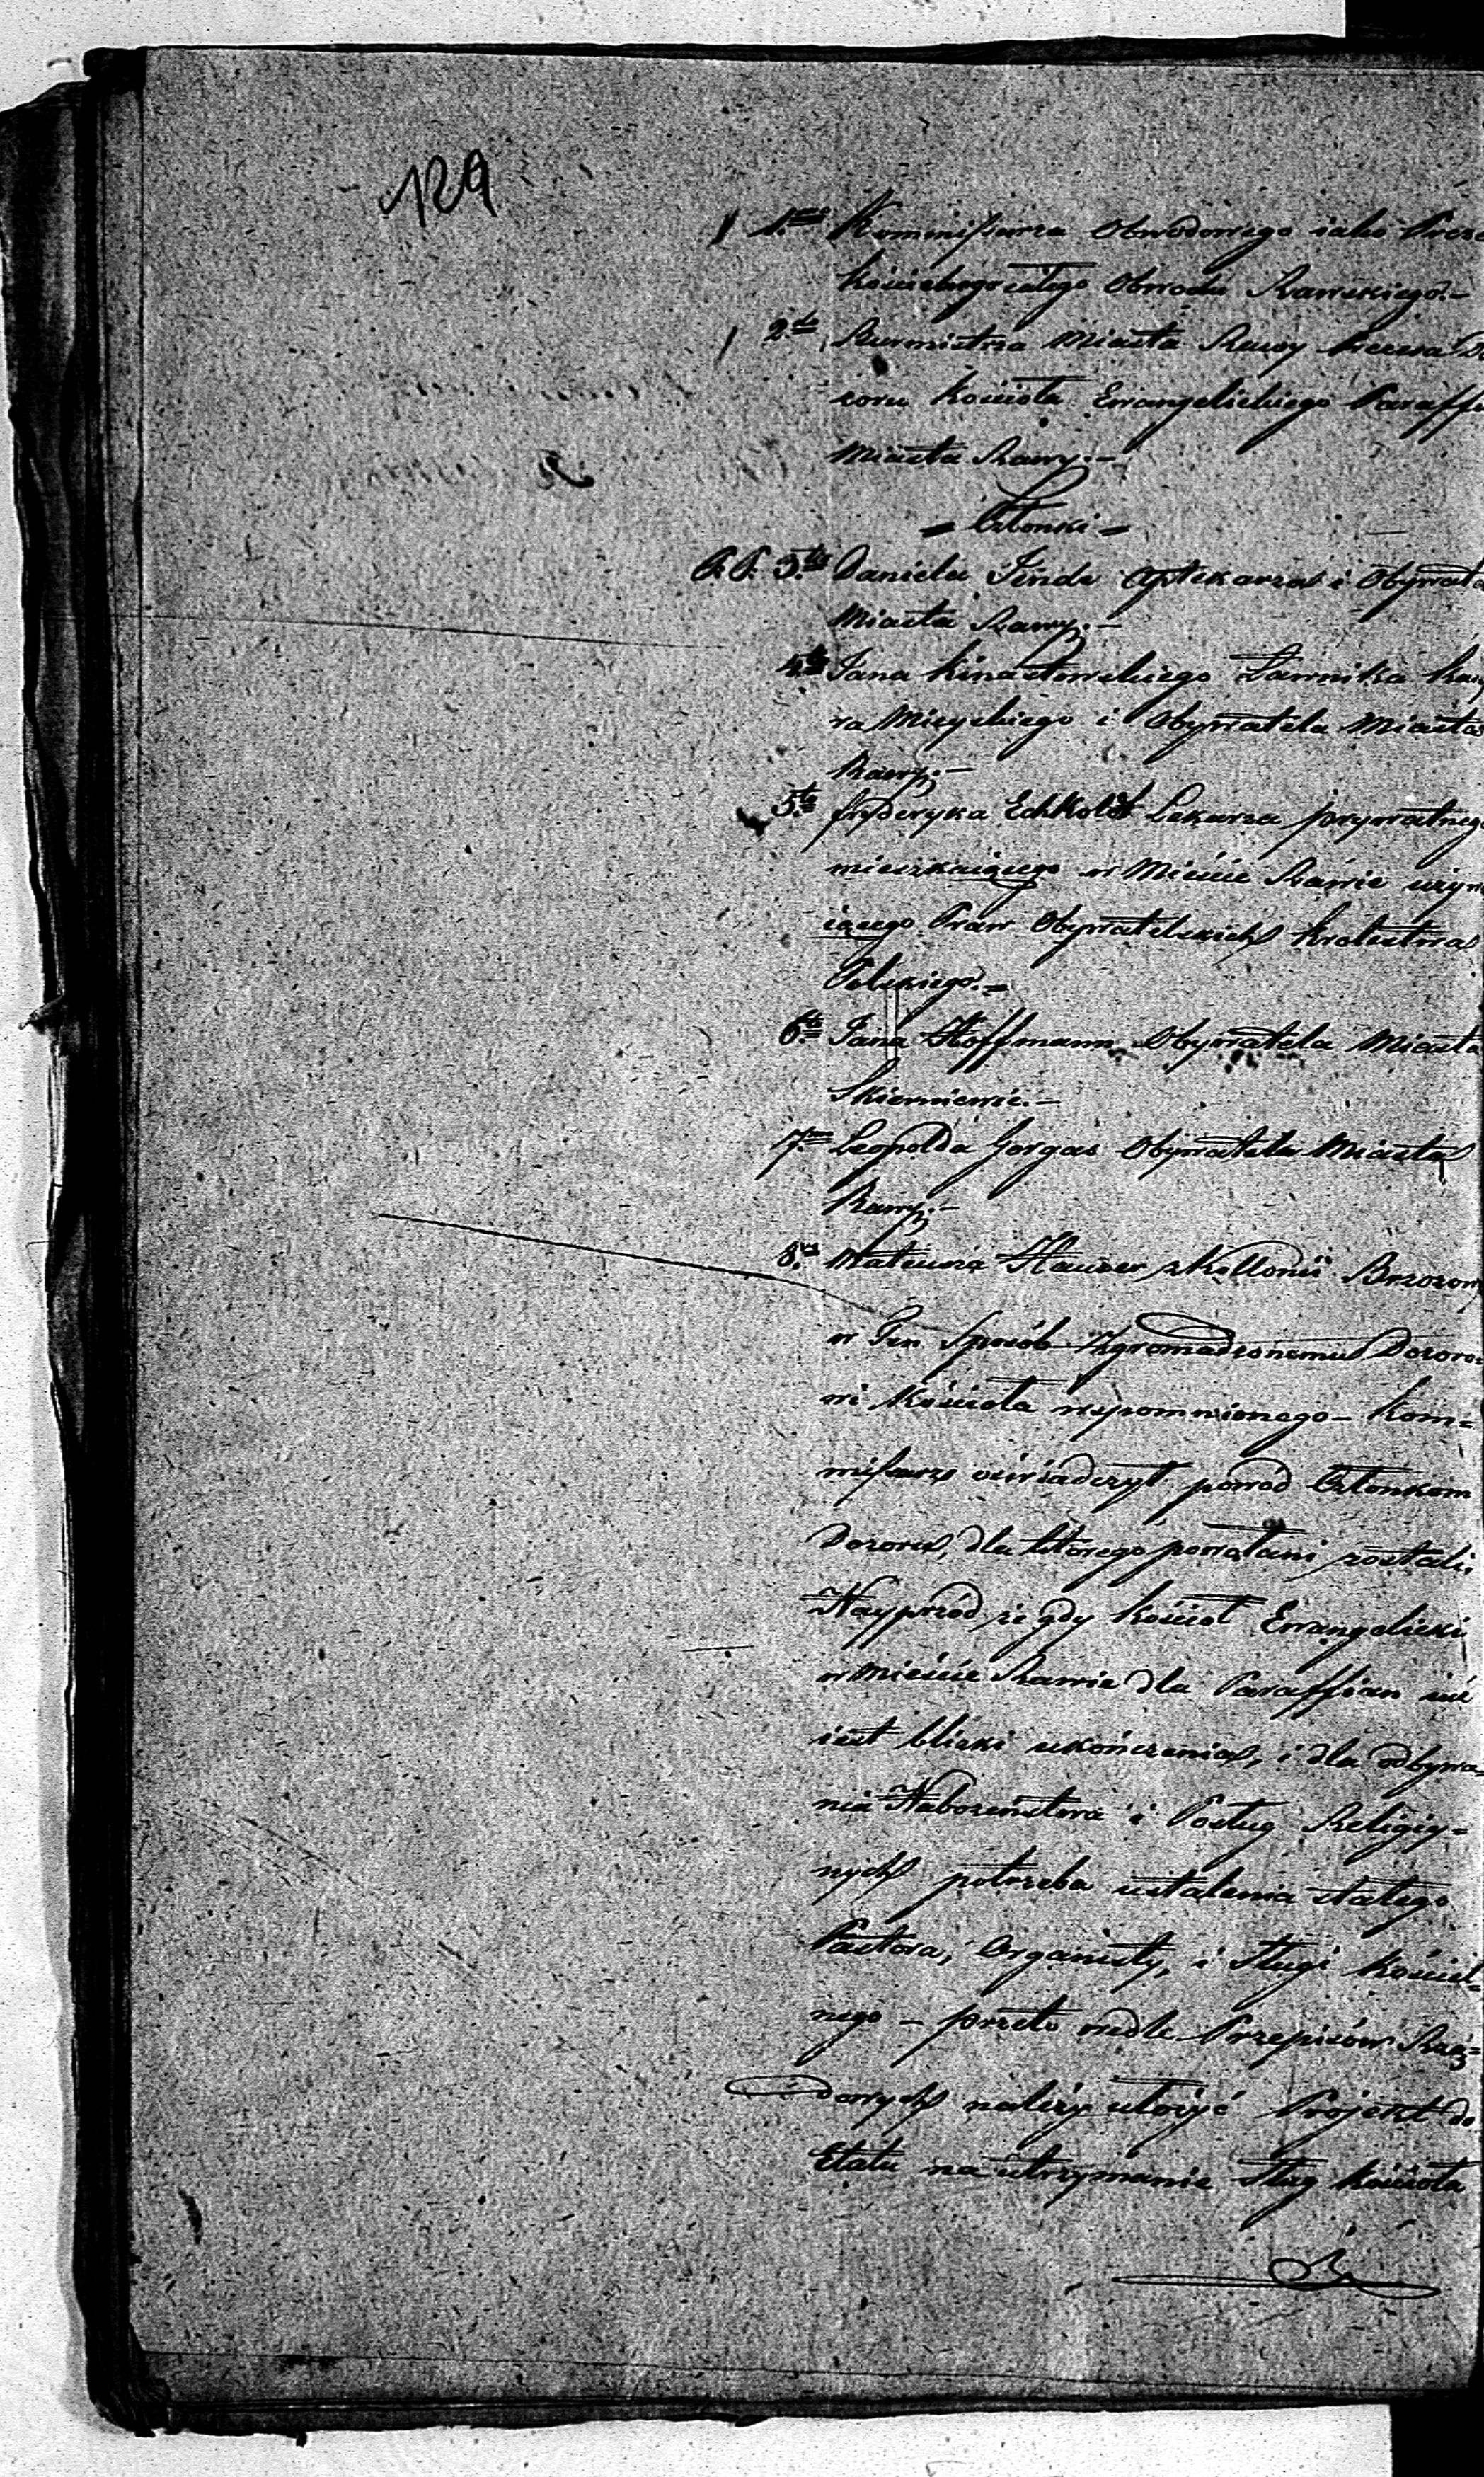 129
1mo Kommissarza Obwodowego iako Preze
kościelnego całego Obwodu Rawskiego.–
2do Burmistrza Miasta Rawy Do
zoru Kościoła Ewangelickiego Paraff
Miasta Rawy.–
= Członki =
P. P. 3tio Daniela Finde Aptekarza i Obywate
Miasta Rawy.–
4to Jana Kinastowskiego Ławnika Kas
ra Mieyskiego i Obywatela Miasta
Rawy.–
5to Fryderyka Eckholdt Lekarza prywatneg
mieszkaiącego w Mieście Rawie używ
iącego Praw Obywatelskich Krolestwa
Polskiego.=
6to Jana Hoffmann Obywatela Miasta
Skierniewic.–
7mo Leopolda Gorgas Obywatela Miasta
Rawy.–
8vo Mateusza Hauser z Kollonii Brzozow
w Ten Sposób Zgromadzonemu Dozoro=
wi Kościoła wspomnionego – Kom=
missarz oświadczył powod Członkom
Dozoru, dla którego powołani zostali.
Nayprzód, że gdy Kościoł Ewangelicki
w Mieście Rawie dla Paraffian iuż
iest bliski ukończenia, i dla odbywa=
nia Nabożeństwa i Posług Religiy=
nych potrzeba ustalenia stałego
Pastora, Organisty, i Sługi Kościel=
nego – przeto wedle Przepisów Rzą=
dowych należy ułożyć Projekt do
Etatu na utrzymanie Sług Kościoła